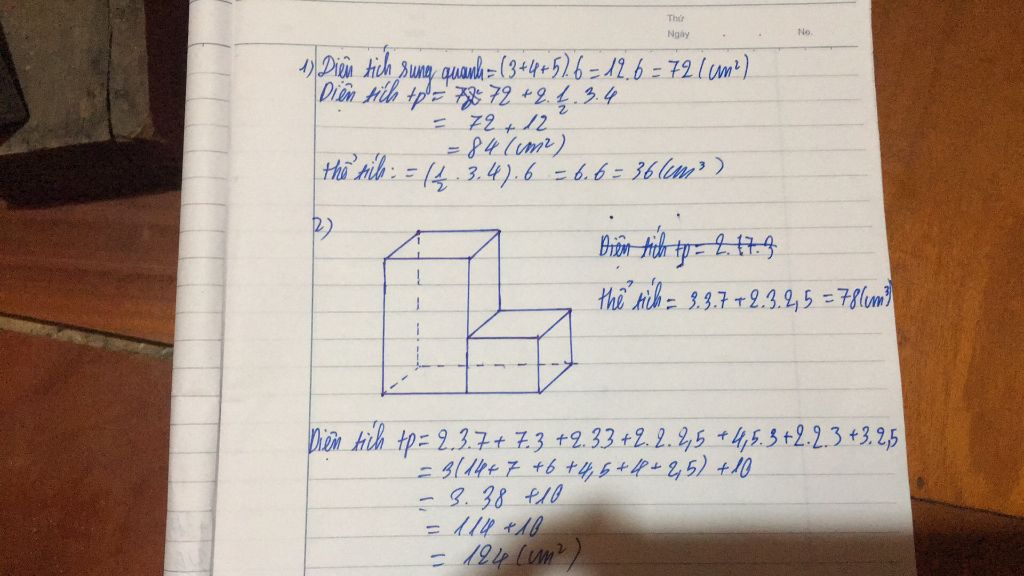 Thứ
Ngày . . No.
1) Diện tích xung quanh = (3+4+5).6 = 12.6 = 72 (cm²)
Diện tích tp = 72 + 2.1/2.3.4
= 72 + 12
= 84 (cm²)
Thể tích: = (1/2.3.4).6 = 6.6 = 36 (cm³)
2)
Diện tích tp = 2.(7.3
Thể tích = 3.3.7 + 2.3.2,5 = 78 (cm³)
Diện tích tp = 2.3.7 + 7.3 + 2.3.3 + 2.2.2,5 + 4,5.3 + 2.2.3 + 3.2,5
= 3(14 + 7 + 6 + 4,5 + 4 + 2,5) + 10
= 3.38 + 10
= 114 + 10
= 124 (cm²)